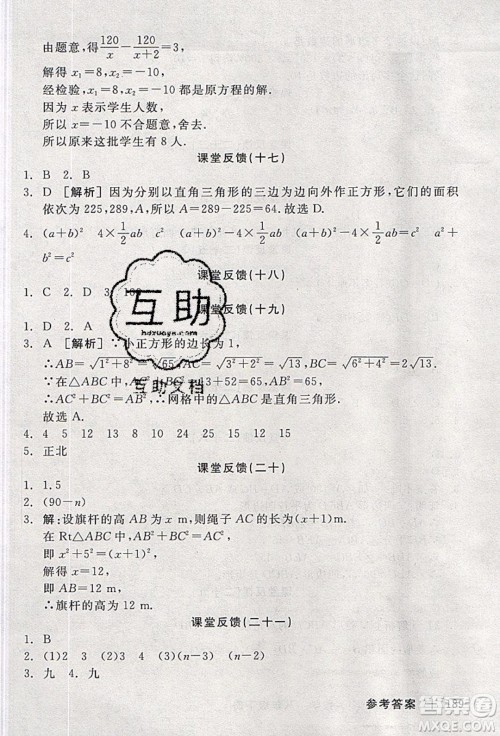 由题意，得120/x－120/(x＋2)＝3，
解得 x₁＝8，x₂＝－10，
经检验，x₁＝8，x₂＝－10 都是原方程的解.
因为 x 表示学生人数，
所以 x＝－10 不合题意，舍去.
所以一共去了学生 8 人.
课堂反馈(十七)
1. B 2. B
3. D [解析] 因为分别以直角三角形的三边为边向外作正方形，它们的面积
依次为 225，289，A，所以 A＝289－225＝64. 故选 D.
4. (a＋b)² 4×1/2ab c² (a＋b)²＝4×1/2ab＋c² a²＋b²＝c²
课堂反馈(十八)
1. C 2. D 3.
课堂反馈(十九)
1. D 2. A
3. A [解析] ∵小正方形的边长为 1，
∴AB＝√(1²＋8²)＝√65，AC＝√(2²＋3²)＝√13，BC＝√(6²＋4²)＝2√13.
∵在△ABC 中，AB²＝BC²＋AC²，∴网格中的△ABC 是直角三角形.
故选 A.
4. 4 5 12 13 8 15 24 25 12 15
5. 正北
课堂反馈(二十)
1. 1.5
2. (90－n)
3. 解：设旗杆的高 AB 为 x m，则绳子 AC 的长为(x＋1)m.
在 Rt△ABC 中，AB²＋BC²＝AC²，
即 x²＋5²＝(x＋1)²，
解得 x＝12，即 AB＝12 m，
∴旗杆的高为 12 m.
课堂反馈(二十一)
1. B
2. (1)2 3 (n－2) (2)3 4 (n－1)
3. 九 4. 九
参考答案 189
互助
hdzuoye.com
互助文档